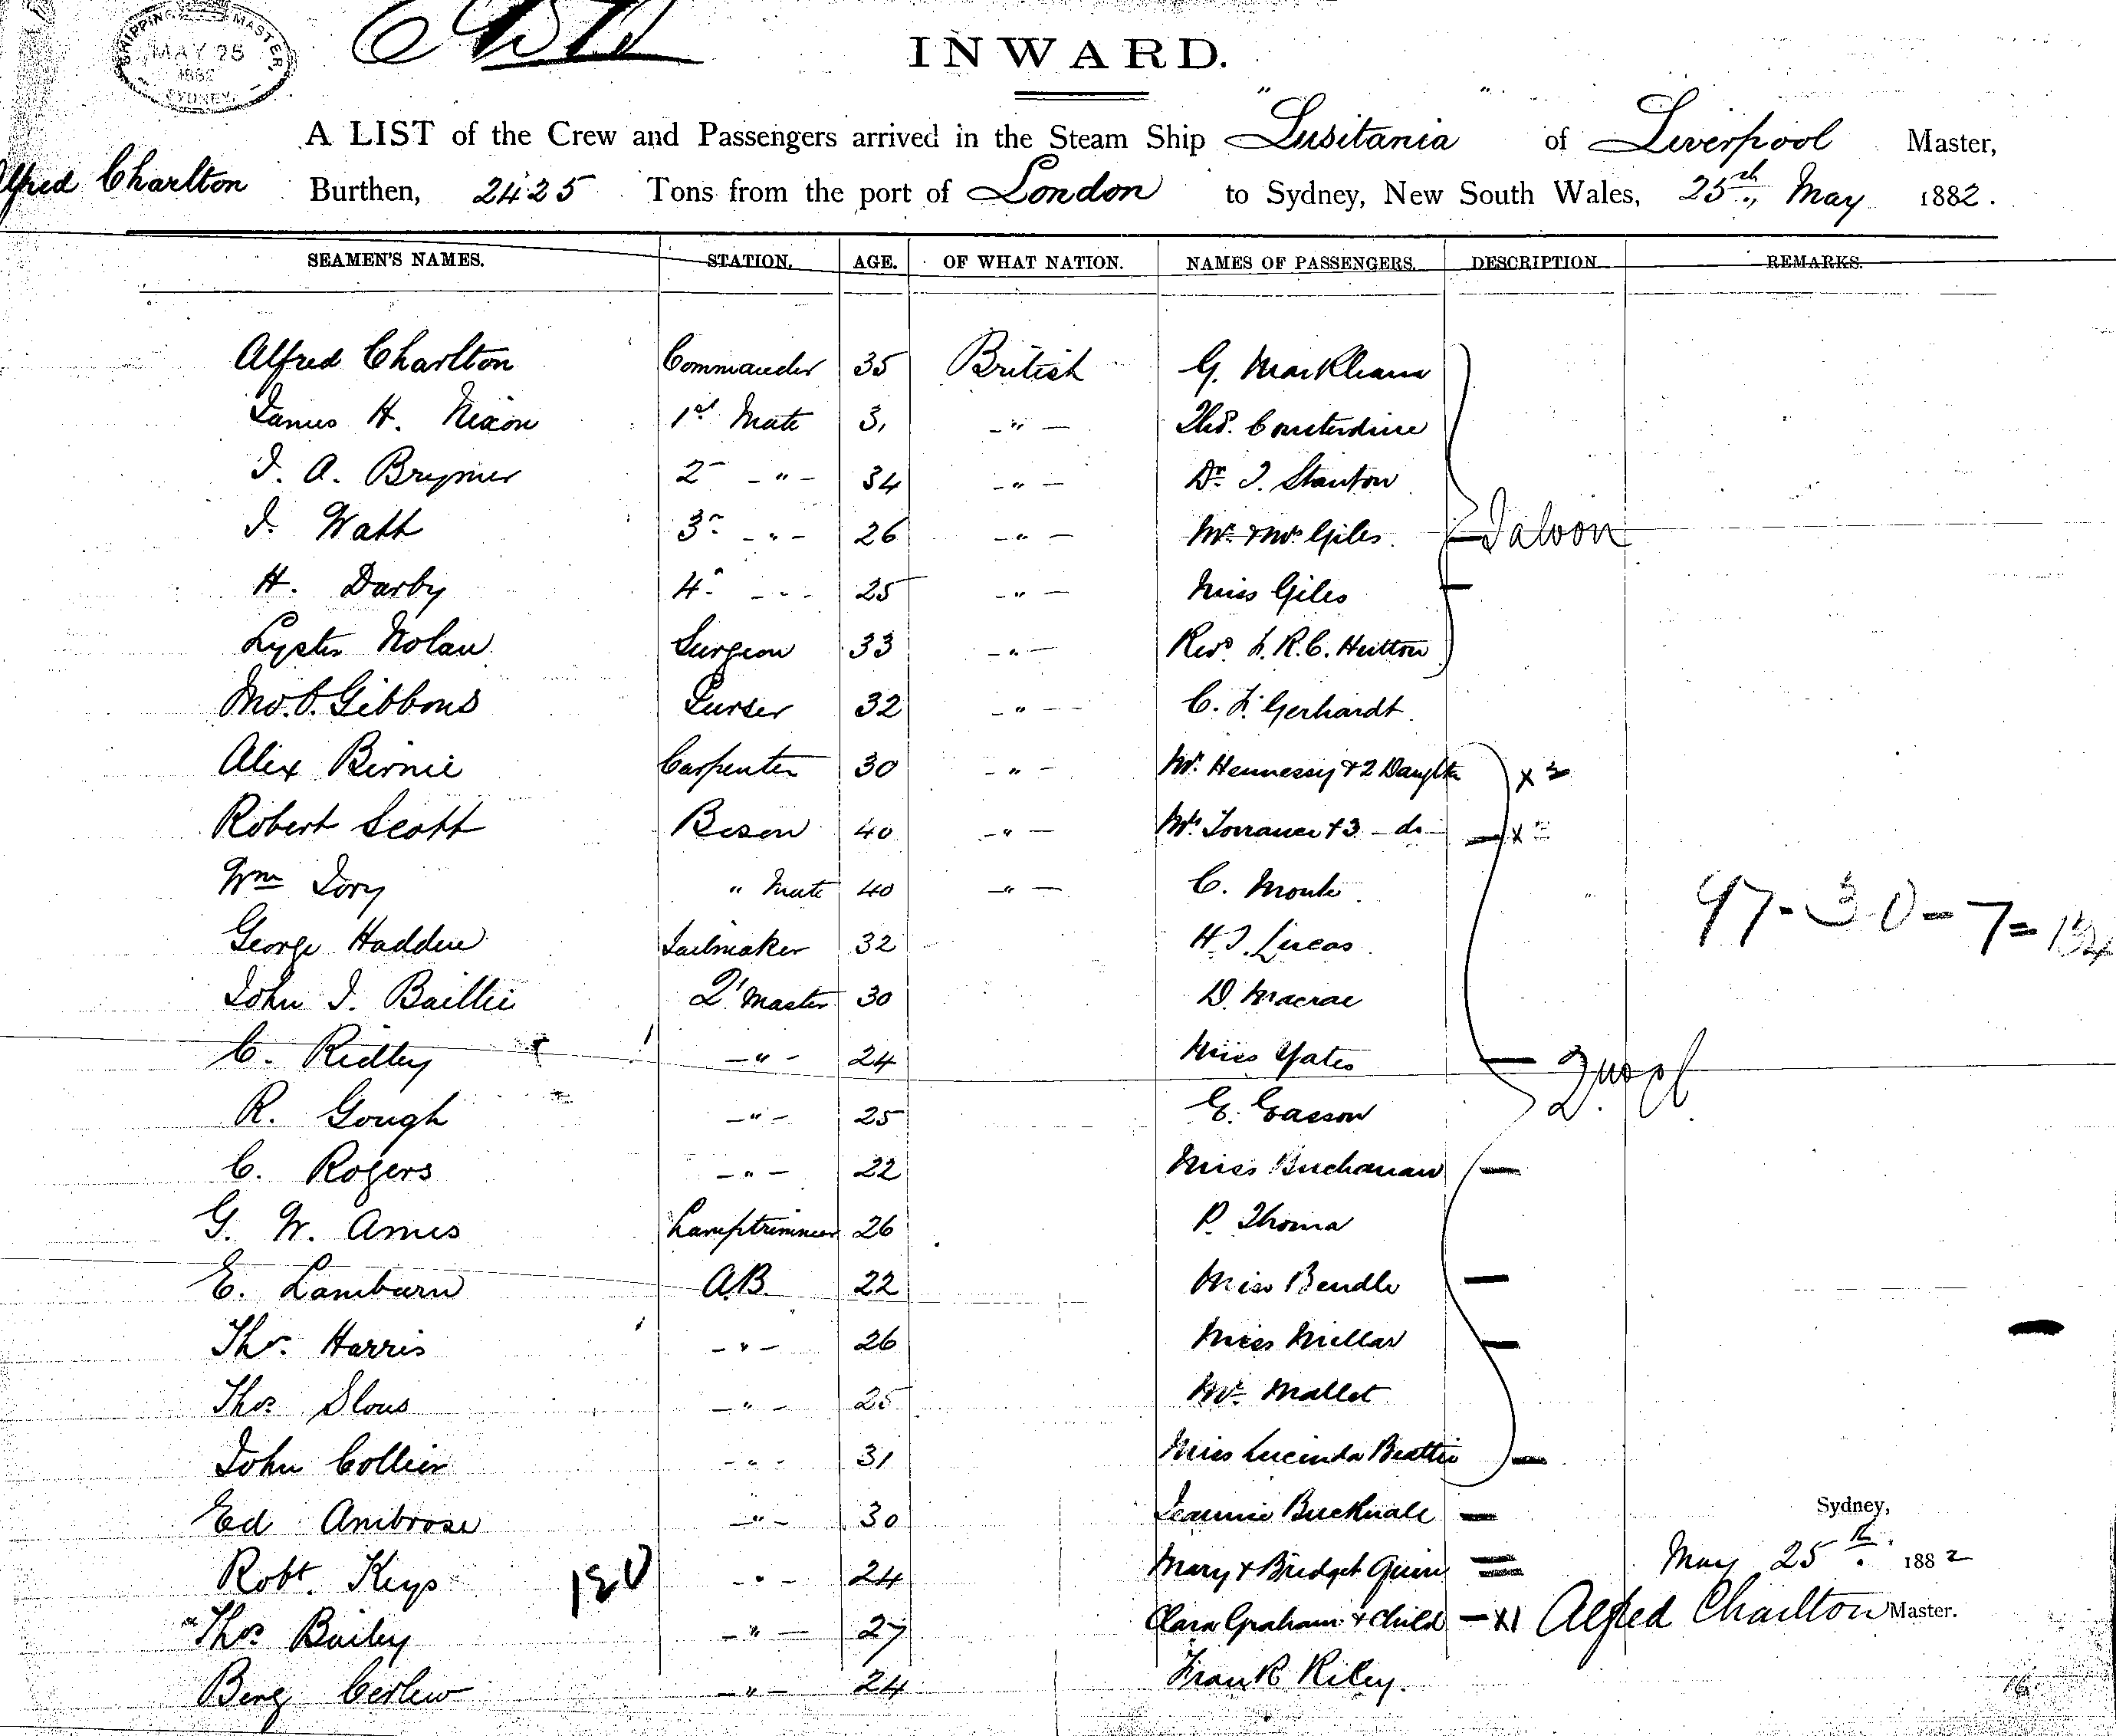 SHIPPING MASTER
MAY 25
1882
SYDNEY.
INWARD.
A LIST of the Crew and Passengers arrived in the Steam Ship "Lusitania" of Liverpool Master,
Alfred Charlton Burthen, 2425 Tons from the port of London to Sydney, New South Wales, 25th May 1882.
SEAMEN'S NAMES. STATION. AGE. OF WHAT NATION. NAMES OF PASSENGERS. DESCRIPTION REMARKS.
Alfred Charlton Commander 35 British G. Markham
James H. Nixon 1st Mate 31 -"- Thos. Consterdine
J. A. Brymer 2 -"- 34 -"- Dr. J. Stanton
J. Watt 3 -"- 26 -"- Mr. & Mrs Giles Saloon
H. Darby 4 - - - 25 -"- Miss Giles
Lyster Nolan Surgeon 33 -"- Revd. L. R. C. Hutton
Jno. C. Gibbons Purser 32 -"- C. F. Gerhardt
Alex Birnie Carpenter 30 -"- Mr. Hennessy & 2 Daughter x 2
Robert Scott Bosen 40 -"- Mrs Torrance + 3 - do - x
Wm Tory " Mate 40 -"- C. Monk
George Hadden Sailmaker 32 H. J. Lucas
97-30-7=134
John J. Baillie Q Master 30 D. Macrae
C. Ridley -"- 24 Miss Yates
R. Gough -"- 25 E. Easson
C. Rogers -"- 22 Miss Buchanan
G. W. Ames Lamptrimmer 26 P. Thoma
E. Lamburn A.B 22 Miss Bendle
Thos. Harris -"- 26 Miss Millar
Thos. Slous -"- 25 Mr. Mallet
John Collier -"- 31 Miss Lucinda Beattie
Ed Ambrose -"- 30 Jeannie Bucknall
Sydney,
Robt. Keys 180 -"- 24 Mary & Bridget Quinn May 25th. 1882
Thos. Bailey -"- 27 Clara Graham & Child - x1 Alfred Charlton Master.
Benj -"- 24 Frank Riley.